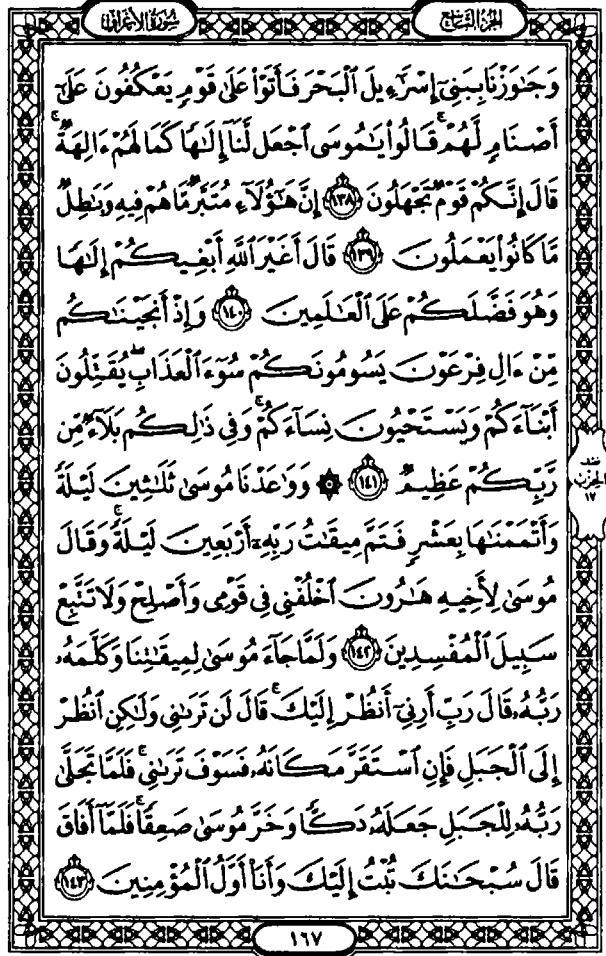 الجزء التاسع
سورة الأعراف
وَجَٰوَزْنَا بِبَنِىٓ إِسْرَٰٓءِيلَ ٱلْبَحْرَ فَأَتَوْا۟ عَلَىٰ قَوْمٍ يَعْكُفُونَ عَلَىٰٓ
أَصْنَامٍ لَّهُمْ ۚ قَالُوا۟ يَٰمُوسَى ٱجْعَل لَّنَآ إِلَٰهًا كَمَا لَهُمْ ءَالِهَةٌ ۚ
قَالَ إِنَّكُمْ قَوْمٌ تَجْهَلُونَ ﴿١٣٨﴾ إِنَّ هَٰٓؤُلَآءِ مُتَبَّرٌ مَّا هُمْ فِيهِ وَبَٰطِلٌ
مَّا كَانُوا۟ يَعْمَلُونَ ﴿١٣٩﴾ قَالَ أَغَيْرَ ٱللَّهِ أَبْغِيكُمْ إِلَٰهًا
وَهُوَ فَضَّلَكُمْ عَلَى ٱلْعَٰلَمِينَ ﴿١٤٠﴾ وَإِذْ أَنجَيْنَٰكُم
مِّنْ ءَالِ فِرْعَوْنَ يَسُومُونَكُمْ سُوٓءَ ٱلْعَذَابِ ۖ يُقَتِّلُونَ
أَبْنَآءَكُمْ وَيَسْتَحْيُونَ نِسَآءَكُمْ ۚ وَفِى ذَٰلِكُم بَلَآءٌ مِّن
رَّبِّكُمْ عَظِيمٌ ﴿١٤١﴾ ۞ وَوَٰعَدْنَا مُوسَىٰ ثَلَٰثِينَ لَيْلَةً
وَأَتْمَمْنَٰهَا بِعَشْرٍ فَتَمَّ مِيقَٰتُ رَبِّهِۦٓ أَرْبَعِينَ لَيْلَةً ۚ وَقَالَ
مُوسَىٰ لِأَخِيهِ هَٰرُونَ ٱخْلُفْنِى فِى قَوْمِى وَأَصْلِحْ وَلَا تَتَّبِعْ
سَبِيلَ ٱلْمُفْسِدِينَ ﴿١٤٢﴾ وَلَمَّا جَآءَ مُوسَىٰ لِمِيقَٰتِنَا وَكَلَّمَهُۥ
رَبُّهُۥ قَالَ رَبِّ أَرِنِىٓ أَنظُرْ إِلَيْكَ ۚ قَالَ لَن تَرَىٰنِى وَلَٰكِنِ ٱنظُرْ
إِلَى ٱلْجَبَلِ فَإِنِ ٱسْتَقَرَّ مَكَانَهُۥ فَسَوْفَ تَرَىٰنِى ۚ فَلَمَّا تَجَلَّىٰ
رَبُّهُۥ لِلْجَبَلِ جَعَلَهُۥ دَكًّا وَخَرَّ مُوسَىٰ صَعِقًا ۚ فَلَمَّآ أَفَاقَ
قَالَ سُبْحَٰنَكَ تُبْتُ إِلَيْكَ وَأَنَا۠ أَوَّلُ ٱلْمُؤْمِنِينَ ﴿١٤٣﴾
الحزب
١٧
١٦٧